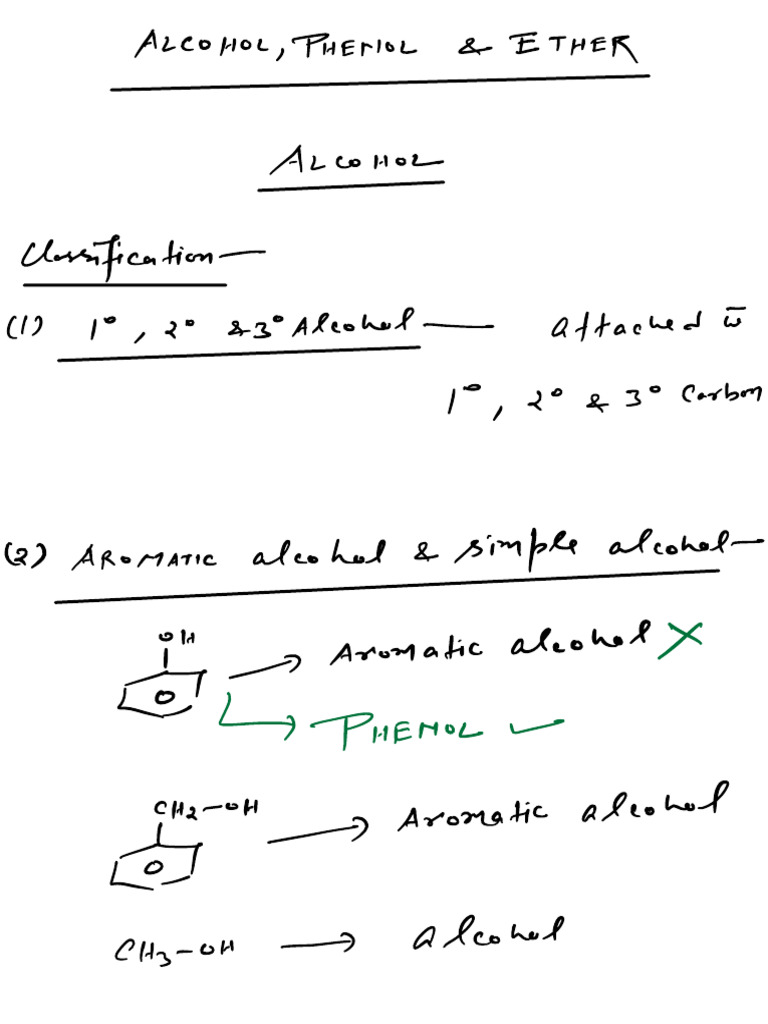 ALCOHOL, PHENOL & ETHER
ALCOHOL
Classification —
(1) 1°, 2° & 3° Alcohol — attached w̄
1°, 2° & 3° Carbon
(2) AROMATIC alcohol & simple alcohol —
OH
Aromatic alcohol ✗
PHENOL ✓
CH2-OH
Aromatic alcohol
CH3-OH → alcohol